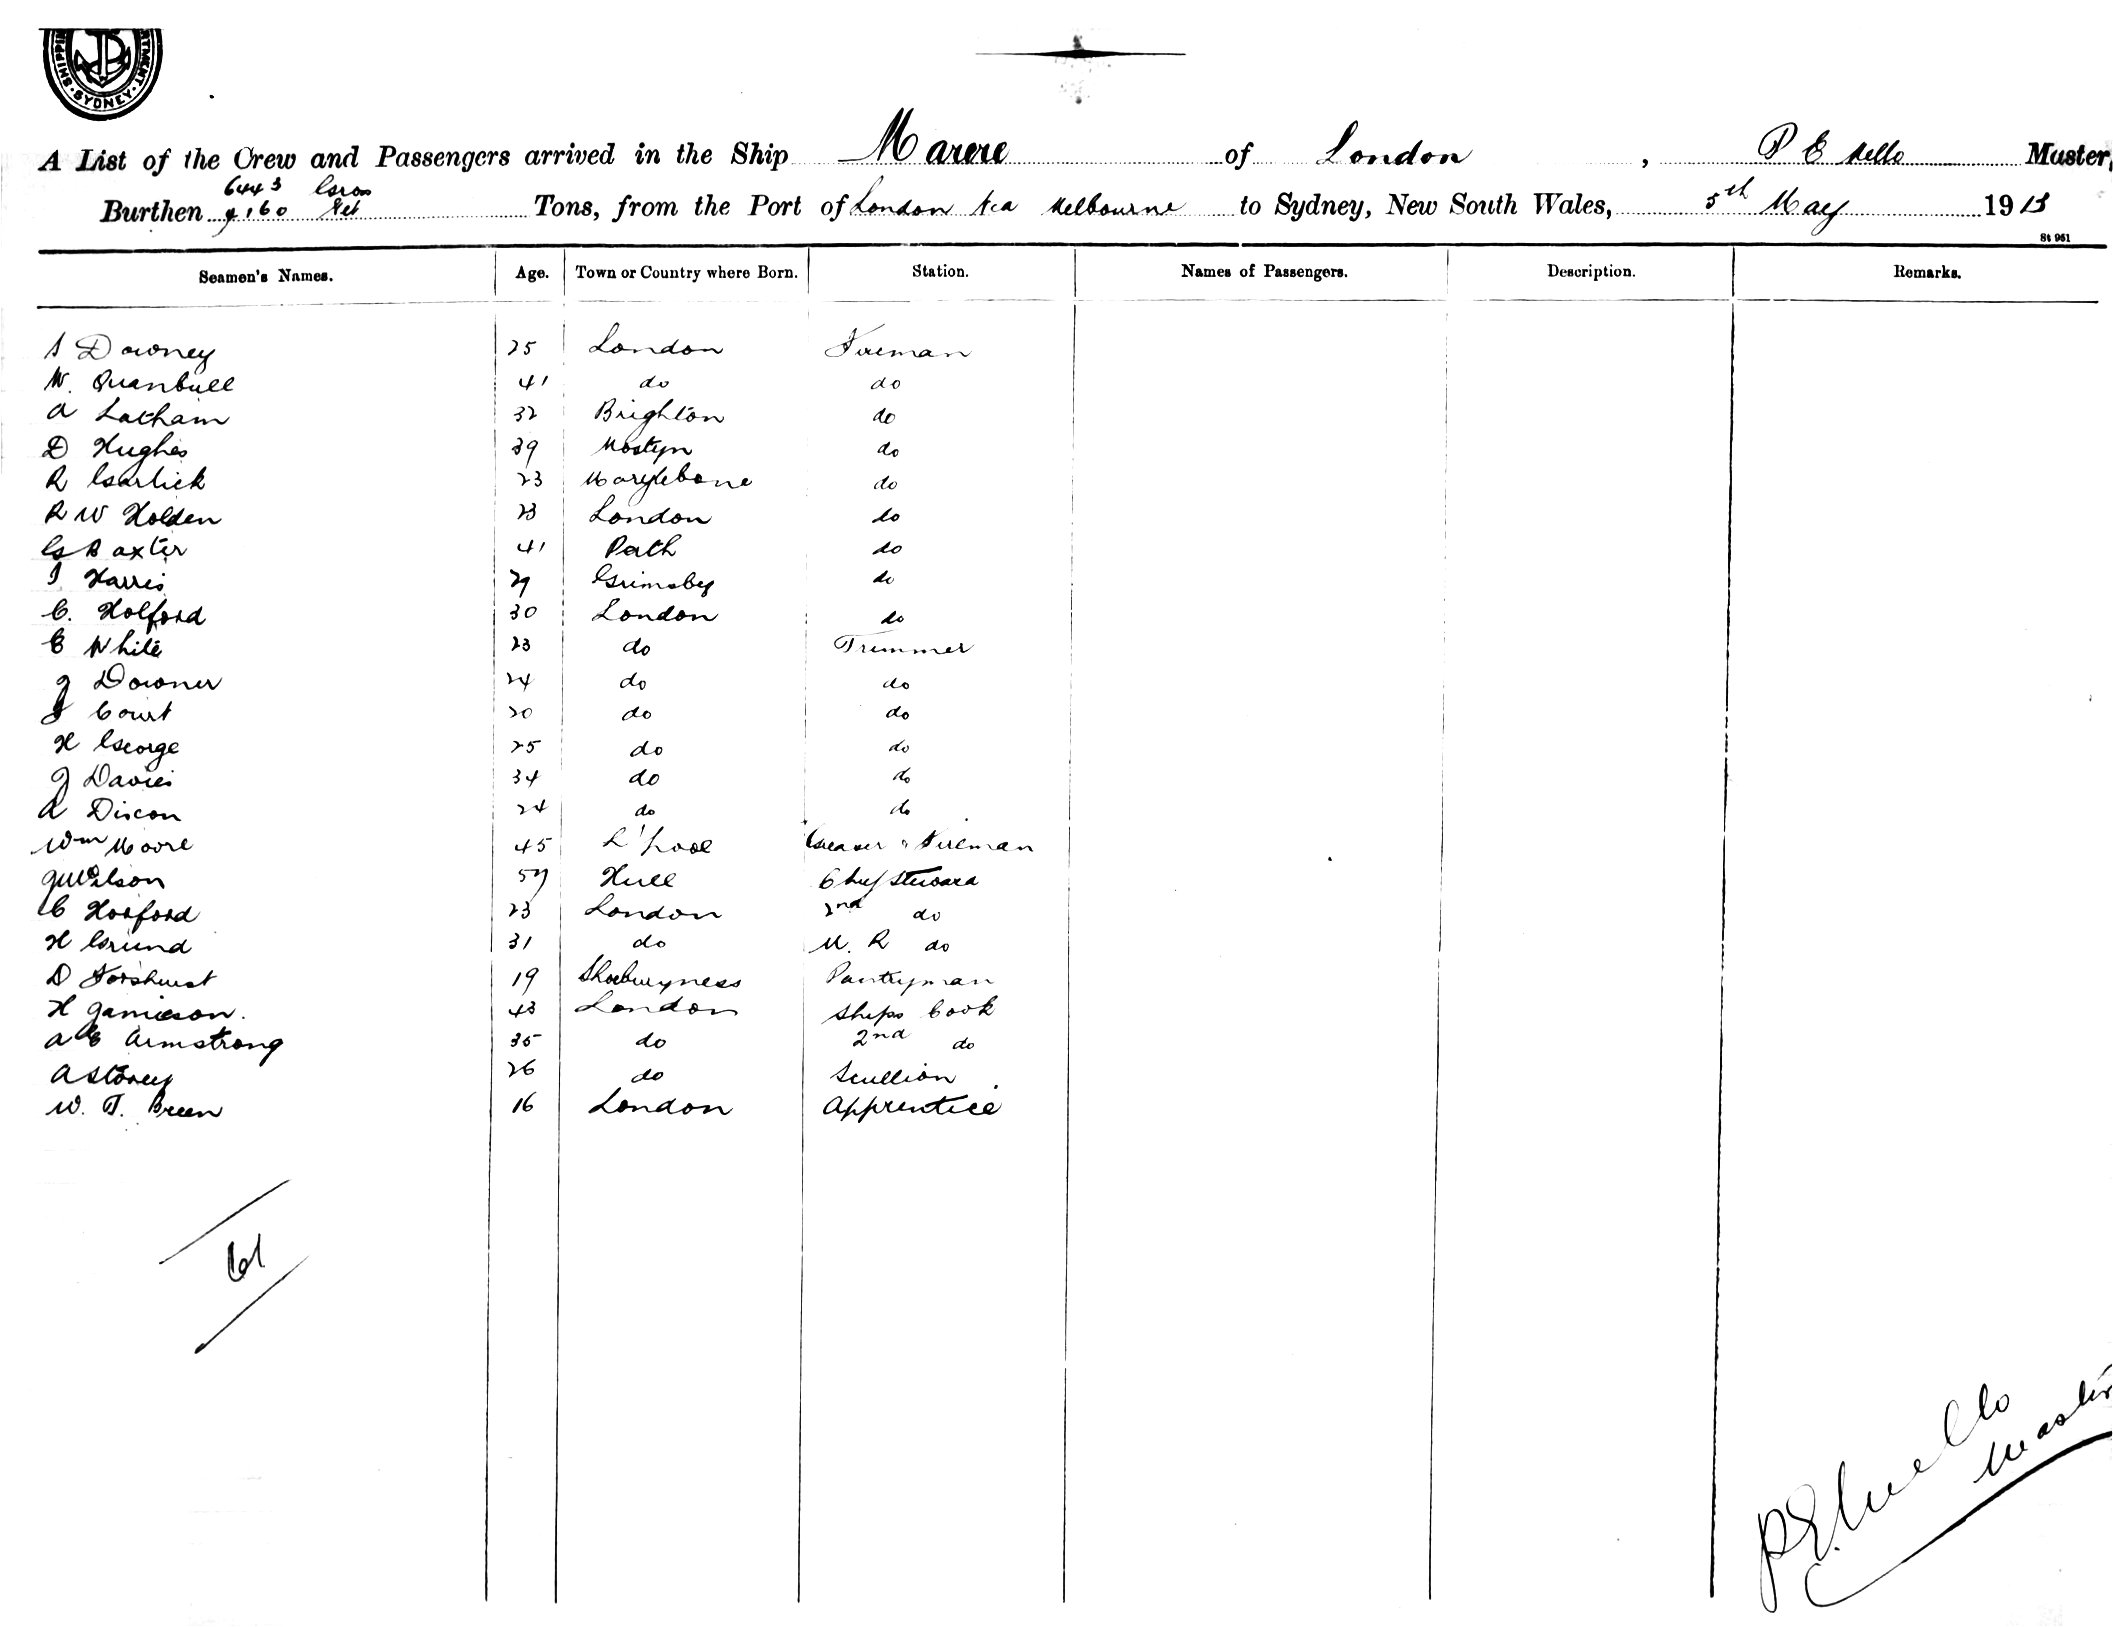 SHIPPIN RTMENT
SYDNEY
A List of the Crew and Passengers arrived in the Ship Marere of London, P E Mello Master,
6443 Gross
Burthen 4160 Net Tons, from the Port of London via Melbourne to Sydney, New South Wales, 5th May 1913
St 961
Seamen's Names. Age. Town or Country where Born. Station. Names of Passengers. Description. Remarks.
Downey 25 London Fireman
W. Quanbull 41 do do
A Latham 32 Brighton do
D Hughes 39 Mostyn do
R Garlick 23 Marylebone do
R W Holden 23 London do
G Baxter 41 Perth do
Harris 29 Grimsby do
C. Holford 30 London do
E White 23 do Trimmer
J Downer 24 do do
J Court 20 do do
H George 25 do do
J Davies 34 do do
A Dixon 24 do do
Wm Moore 45 L'pool Greaser & Fireman
J Wilson 57 Hull Chief Steward
C Horford 23 London 2nd do
H Grund 31 do M. R do
D Forshurst 19 Shoeburyness Pantryman
H Jamieson. 43 London Ships Cook
A E Armstrong 35 do 2nd do
A Storey 26 do Scullion
W. T. Breen 16 London Apprentice
61
P E Mello
Master